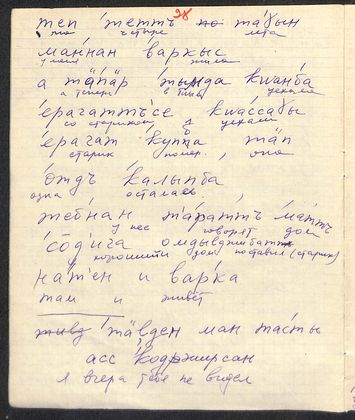 28
теп теттъ та́ɣын
та четыре лета
ман̄нан варкыс
у меня жила
а та́па́р ты́нда кwан̄ба
а теперь в тым уехала
е́рагаттъ'се кwа́ссаɣы
со стариком уехали
е́рага́т ку́ппа тап
старик помер, она
о́ндъ ка́лы́пба
одна осталась
же́бнан та́раттъ ма́ттъ
у нее говорят дом
со́диґа омдыджибат
хороший дом поставил (старик)
на́т'ен и вар́ка
там и живёт
та́вден ман та́сты
асс ко́джирсан
я вчера тебя не видел